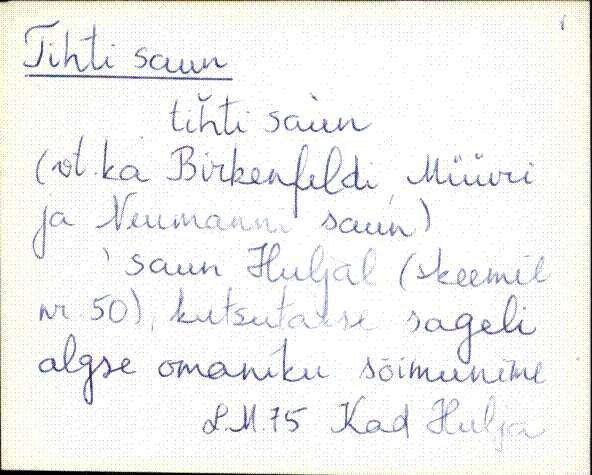 Tihti saun
tihti saùn
(vt. ka Birkenfeldi, Müüri
ja Neumanni saun)
saun Huljal (skeemil
nr. 50), kutsutakse sageli
algse omaniku sõimunime
L.M. 75 Kad Hulja